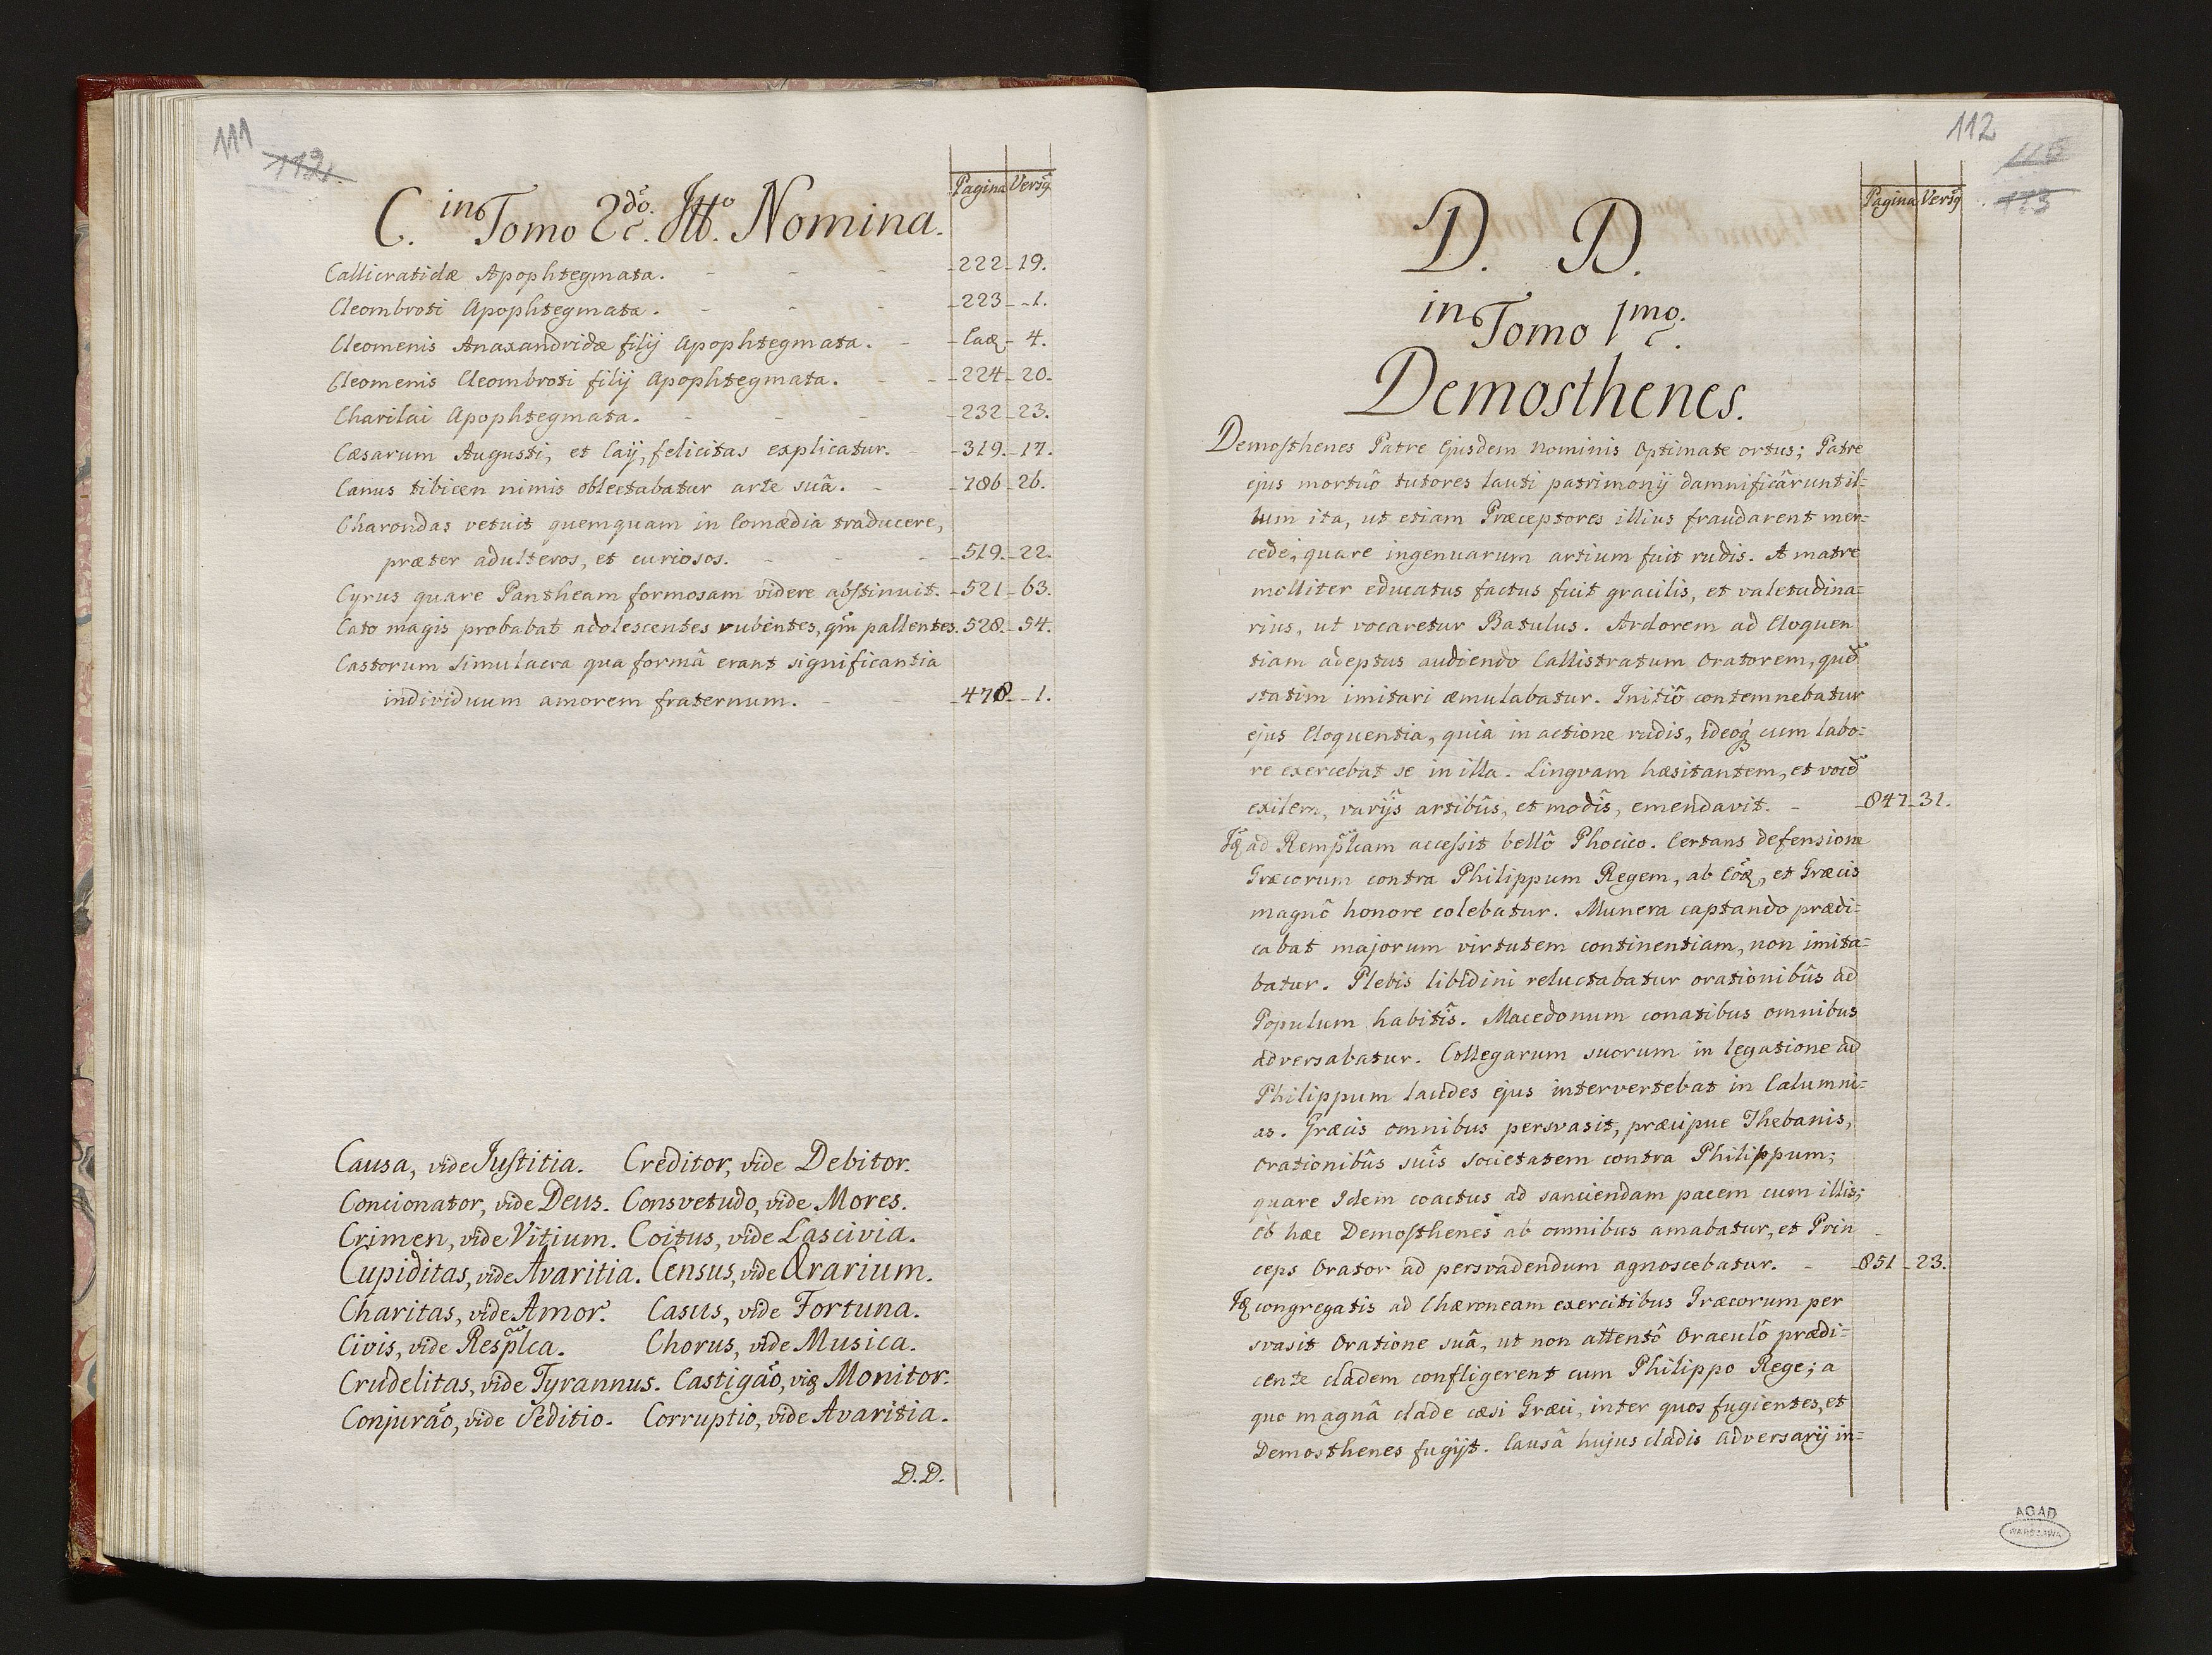 111
112.
Pagina Versq
C. in Tomo 2do. Itto. Nomina.
Callicratidæ Apophtegmata. - - - 222 - 19.
Cleombroti Apophtegmata. - - - 223 - 1.
Cleomenis Anaxandridæ filij Apophtegmata. - Eaq - 4.
Cleomenis Cleombroti filij Apophtegmata. - - 224 - 20.
Charilai Apophtegmata. - - - 232 - 23.
Cæsarum Augusti, et Caÿ, felicitas explicatur. - 319. - 17.
Canus tibicen nimis oblectabatur arte suâ. - 786 - 26.
Charondas vetuit quemquam in Comædia traducere,
præter adulteros, et curiosos. - - - 519. - 22.
Cyrus quare Pantheam formosam videre abstinuit. - 521 - 63.
Cato magis probabat adolescentes rubentes, qm̃ pallentes. 528. - 54.
Castorum Simulacra qua formâ erant significantia
individuum amorem fraternum. - - 478 - 1.
Causa, vide Justitia. Creditor, vide Debitor.
Concionator, vide Deus. Consvetudo, vide Mores.
Crimen, vide Vitium. Coitus, vide Lascivia.
Cupiditas, vide Avaritia. Census, vide Ærarium.
Charitas, vide Amor. Casus, vide Fortuna.
Civis, vide Resplca. Chorus, vide Musica.
Crudelitas, vide Tyrannus. Castigaõ, vid Monitor.
Conjuraõ, vide Seditio. Corruptio, vide Avaritia.
D.D.
112
113
Pagina Versq
D. D.
in Tomo 1mo.
Demosthenes.
Demosthenes Patre Ejusdem Nominis Optimate ortus; Patre
ejus mortuô tutores lauti patrimonÿ damnificârunt il=
lum ita, ut etiam Præceptores illius fraudarent mer=
cede, quare ingenuarum artium fuit rudis. A matre
molliter educatus factus fuit gracilis, et valetudina=
rius, ut vocaretur Batulus. Ardorem ad Eloquen
tiam adeptus audiendo Callistratum Oratorem, quẽ
statim imitari æmulabatur. Initiô contemnebatur
ejus Eloquentia, quia in actione rudis, ideoq cum labo=
re exercebat se in illa. Lingvam hæsitantem, et vocẽ
exilem, varÿs artibûs, et modîs, emendavit. - 847 - 31.
Iq ad Remplcam accessit bellô Phocico. Certans defensione
Græcorum contra Philippum Regem, ab Eoq, et Græcis
magnô honore colebatur. Munera captando prædi=
cabat majorum virtutem continentiam, non imita=
batur. Plebis libidini reluctabatur orationibûs ad
Populum habitîs. Macedonum conatibus omnibus
adversabatur. Collegarum suorum in legatione ad
Philippum laudes ejus intervertebat in Calumni=
as. Græcis omnibus persvasit, præcipue Thebanis,
Orationibûs suîs Societatem contra Philippum;
quare Idem coactus ad sanciendam pacem cum illis;
ob hæc Demosthenes ab omnibus amabatur, et Prin
ceps Orator ad persvadendum agnoscebatur. - 851 - 23.
Iq congregatis ad Chæroneam exercitibus Græcorum per
svasit Oratione suâ, ut non attentô Oraculô prædi=
cente cladem confligerent cum Philippo Rege; a
quo magnâ clade cæsi Græci, inter quos fugientes, et
Demosthenes fugÿt. Causâ hujus cladis Adversarÿ in=
AGAD
WARSZAWA